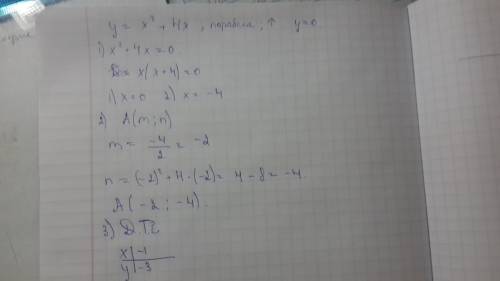 y = x² + 4x, парабола, ↑ y=0
1) x²+4x=0
D= x(x+4)=0
1) x=0 2) x=-4
2) A(m;n)
m= -4/2 = -2
n=(-2)²+4·(-2)= 4-8=-4.
A(-2;-4).
3) Д.Т.
x | -1
y | -3